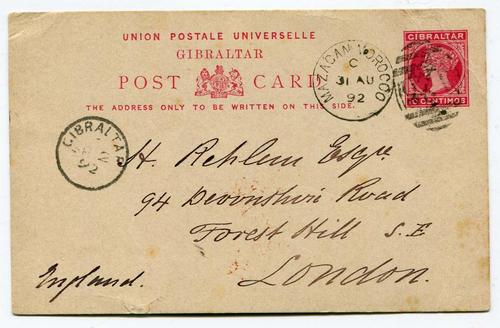 UNION POSTALE UNIVERSELLE
GIBRALTAR
POST CARD
THE ADDRESS ONLY TO BE WRITTEN ON THIS SIDE.
MAZAGAN-MOROCCO
C
31 AU
92
GIBRALTAR
10 CENTIMOS
GIBRALTAR
92
H. Rehlem Esqre
94 Devonshire Road
Forest Hill S.E
London.
England.